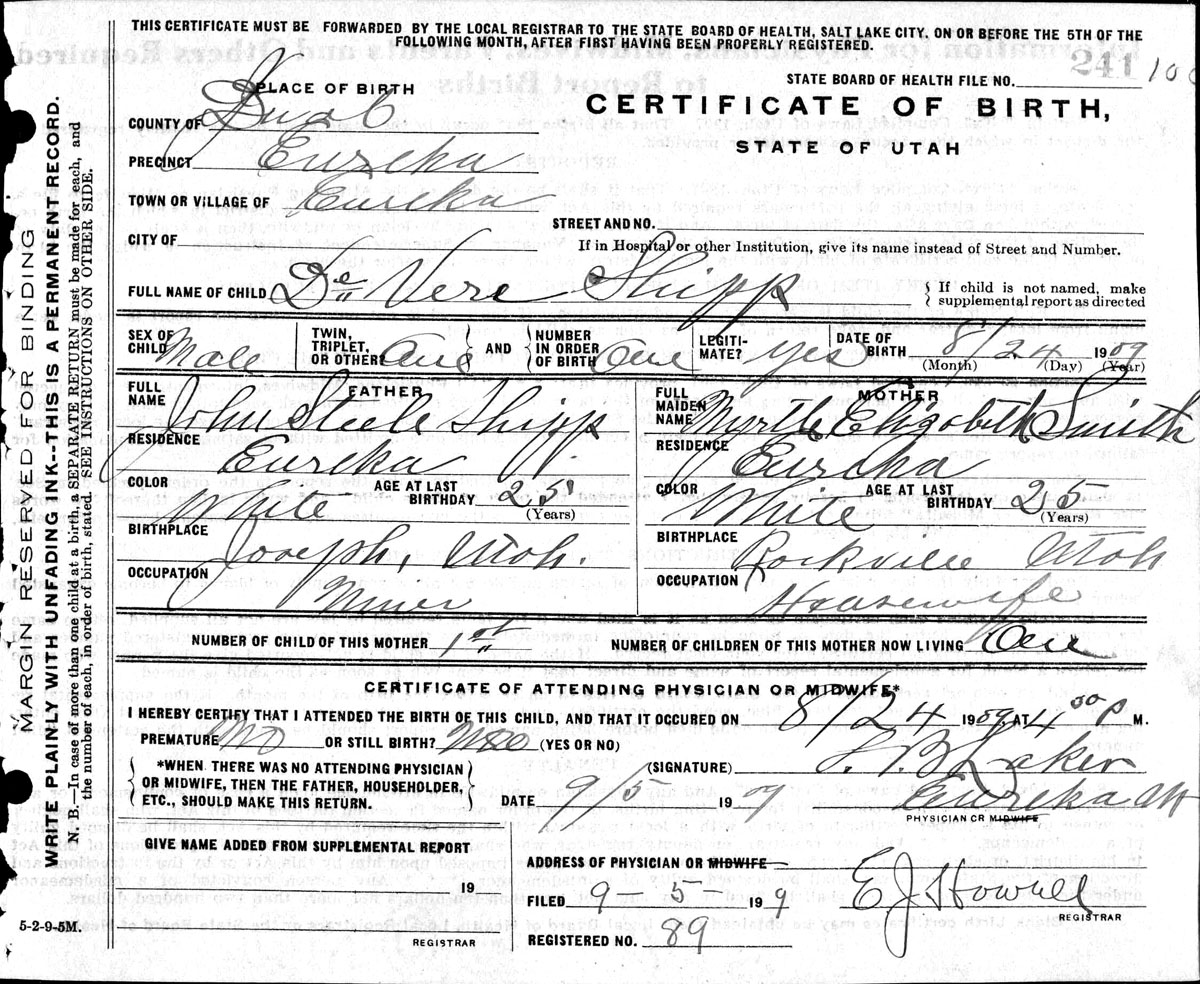 THIS CERTIFICATE MUST BE FORWARDED BY THE LOCAL REGISTRAR TO THE STATE BOARD OF HEALTH, SALT LAKE CITY, ON OR BEFORE THE 5TH OF THE
FOLLOWING MONTH, AFTER FIRST HAVING BEEN PROPERLY REGISTERED.
241 100
STATE BOARD OF HEALTH FILE NO.
PLACE OF BIRTH
CERTIFICATE OF BIRTH,
STATE OF UTAH
COUNTY OF Juab
PRECINCT Eureka
TOWN OR VILLAGE OF Eureka
STREET AND NO.
CITY OF
If in Hospital or other Institution, give its name instead of Street and Number.
FULL NAME OF CHILD De Vere Shipp
If child is not named, make
supplemental report as directed
SEX OF CHILD Male TWIN, TRIPLET, OR OTHER? One AND NUMBER IN ORDER OF BIRTH One LEGITI-MATE? yes DATE OF BIRTH 8/24 1909
(Month) (Day) (Year)
FATHER MOTHER
FULL NAME John Steele Shipp FULL MAIDEN NAME Myrtle Elizabeth Smith
RESIDENCE Eureka RESIDENCE Eureka
COLOR White AGE AT LAST BIRTHDAY 25 (Years) COLOR White AGE AT LAST BIRTHDAY 25 (Years)
BIRTHPLACE Joseph, Utah. BIRTHPLACE Rockville Utah
OCCUPATION Miner OCCUPATION Housewife
NUMBER OF CHILD OF THIS MOTHER 1st NUMBER OF CHILDREN OF THIS MOTHER NOW LIVING One
CERTIFICATE OF ATTENDING PHYSICIAN OR MIDWIFE*
I HEREBY CERTIFY THAT I ATTENDED THE BIRTH OF THIS CHILD, AND THAT IT OCCURED ON 8/24 1909, AT 4 00 P M.
PREMATURE No OR STILL BIRTH? No (YES OR NO)
*WHEN THERE WAS NO ATTENDING PHYSICIAN
OR MIDWIFE, THEN THE FATHER, HOUSEHOLDER,
ETC., SHOULD MAKE THIS RETURN.
(SIGNATURE) Laker
DATE 9/5 1909 Eureka Ut
PHYSICIAN OR MIDWIFE
GIVE NAME ADDED FROM SUPPLEMENTAL REPORT
19
REGISTRAR
ADDRESS OF PHYSICIAN OR MIDWIFE
FILED 9-5- 199
REGISTERED NO. 89
E J Howell
REGISTRAR
5-2-9-5M.
MARGIN RESERVED FOR BINDING
WRITE PLAINLY WITH UNFADING INK--THIS IS A PERMANENT RECORD.
N. B.—In case of more than one child at a birth, a SEPARATE RETURN must be made for each, and
the number of each, in order of birth, stated. SEE INSTRUCTIONS ON OTHER SIDE.